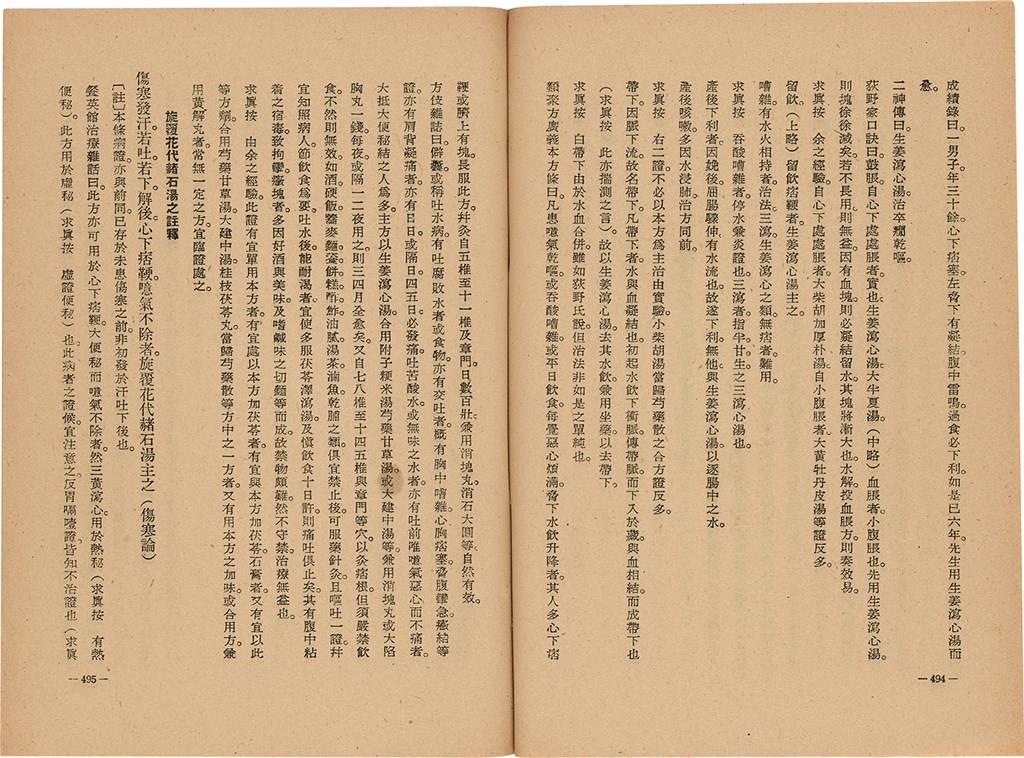 成績錄曰。一男子。年三十餘。心下痞塞。左脅下有凝結。腹中雷鳴。過食必下利。如是已六年。先生用生姜瀉心湯而
愈。
二神傳曰。生姜瀉心湯。治卒癇乾嘔。
荻野家口訣曰。鼓脹自心下處處脹者。實也。生姜瀉心湯。大半夏湯。(中略)血脹者。小腹脹也。先用生姜瀉心湯。
則塊徐徐減矣。若不長用。則無益。因有血塊。則必凝結留水。其塊將漸大也。水解。投血脹方。則奏效易。
求眞按 余之經驗。自心下處處脹者。大柴胡加厚朴湯。自小腹脹者。大黃牡丹皮湯等證反多。
留飲(上略)留飲痞鞕者。生姜瀉心湯主之。
嘈雜有水火相持者。治法三瀉。生姜瀉心之類。無痞者難用。
求眞按 吞酸嘈雜者。停水兼炎證也。三瀉者。指半甘生之三瀉心湯也。
產後下利者。因娩後屈腸驟伸。有水流也。故遂下利無他。與生姜瀉心湯。以逐腸中之水。
產後咳嗽。多因水浸肺。治方同前。
求眞按 右二證。不必以本方爲主治。由實驗。小柴胡湯當歸芍藥散之合方證反多。
帶下。因脈下流。故名帶下。凡帶下者。水與血凝結也。初起水飲下衝脈。傳帶脈而下。又於藏與血相結。而成帶下也。
(求眞按 此亦揣測之言)。故以生姜瀉心湯。去其水飲。兼用坐藥。以去帶下。
求眞按 白帶下由於水血合併。雖如荻野氏說。但治法非如是之單純也。
類聚方廣義本方條曰。凡患噫氣乾嘔。或吞酸嘈雜。或平日飲食。每覺惡心煩滿。脅下水飲升降者。其人多心下痞
— 494 —
鞕。或臍上有塊。長服此方。幷灸自五椎至十一椎及章門。日數百壯。兼用消塊丸消石大圓等。自然有效。
方伎雜誌曰。僻囊或稱吐水病。有吐腐敗水者。或食物。亦有交吐者。概有胸中嘈雜。心胸痞塞。脅腹攣急。癥結等
證。亦有肩背凝痛者。亦有日日或隔日。四五日必發痛。吐苦酸水。或無味之水者。亦有吐前唯噫氣惡心。而不痛者。
大抵大便秘結之人爲多。主方以生姜瀉心湯合用附子粳米湯。芍藥甘草湯。或大建中湯等。兼用消塊丸或大陷
胸丸一錢。每夜或隔一二夜用之。則三四月全愈矣。又自七八椎至十四五椎。與章門等穴。以灸痞根。但須嚴禁飲
食。不然。則無效。如酒。硬飯。蕎麥。麵。菱餅。糕。酢。鮓。油膩湯茶鹵魚乾脯之類。俱宜禁止。後可服藥針灸。且嘔吐一證。幷
宜知照病人。節飲食爲要。吐水後。能耐渴者。宜使多服茯苓澤瀉湯。及愼飲食。十日許。則痛吐俱止矣。其有腹中粘
着之宿毒。致拘攣癥塊者。多因好酒與美味。及嗜鹹味之切麵等而成。故禁物頗難。然不守禁。治療無益也。
求眞按 由余之經驗。此證有宜單用本方者。有宜處以本方加茯苓者。有宜與本方加茯苓石膏者。又有宜以此
等方劑。合用芍藥甘草湯。大建中湯。桂枝茯苓丸。當歸芍藥散等方中之一方者。又有用本方之加味或合用方。兼
用黃解丸者。常無一定之方。宜臨證處之。
旋覆花代赭石湯之註釋
傷寒發汗。若吐。若下。解後。心下痞鞕。噫氣不除者。旋覆花代赭石湯主之(傷寒論)
〔註〕本條病證。亦與前同。已存於未患傷寒之前。非初發於汗吐下後也。
餐英館治療雜話曰。此方亦可用於心下痞鞕。大便秘而噫氣不除者。然三黃瀉心。用於熱秘(求眞按 有熱
便秘)。此方用於虛秘(求眞按 虛證便秘)也。此病者之證候。宜注意之。反胃噎證。皆知不治證也(求眞
— 495 —